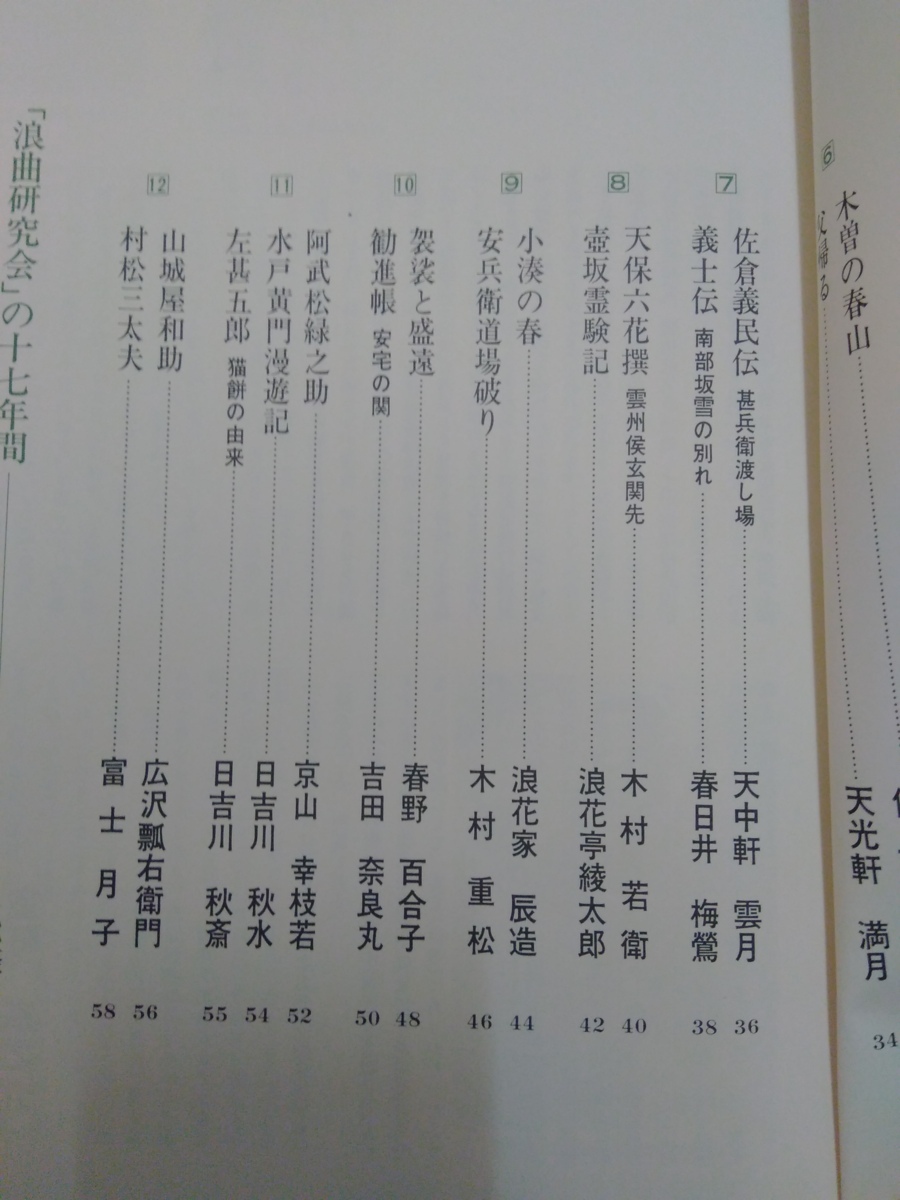 6
木曽の春山
父帰る
天光軒 満月
34
7
佐倉義民伝 甚兵衛渡し場 天中軒 雲月 36
義士伝 南部坂雪の別れ 春日井 梅鶯 38
8
天保六花撰 雲州侯玄関先 木村 若衛 40
壺坂霊験記 浪花亭綾太郎 42
9
小湊の春 浪花家 辰造 44
安兵衛道場破り 木村 重松 46
10
袈裟と盛遠 春野 百合子 48
勧進帳 安宅の関 吉田 奈良丸 50
11
阿武松緑之助 京山 幸枝若 52
水戸黄門漫遊記 日吉川 秋水 54
左甚五郎 猫餅の由来 日吉川 秋斎 55
12
山城屋和助 広沢瓢右衛門 56
村松三太夫 富士 月子 58
「浪曲研究会」の十七年間